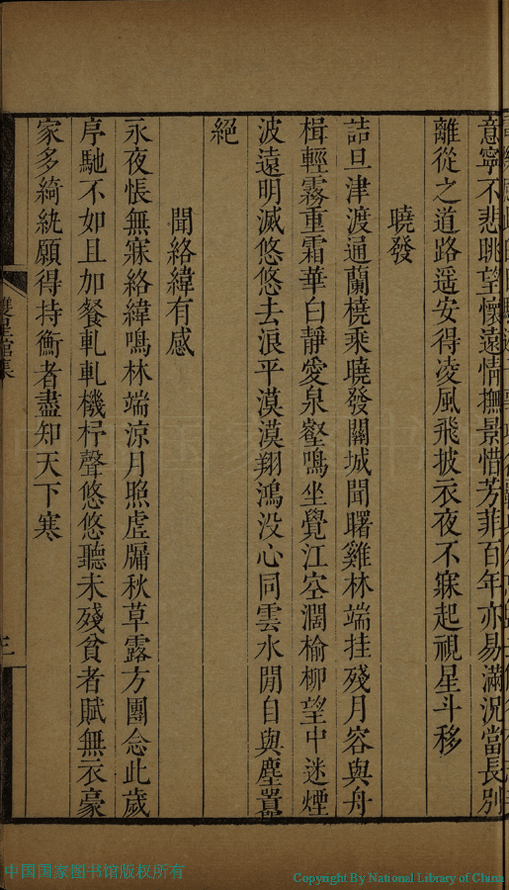 意寧不悲眺望懷遠情撫景惜芳菲百年亦易滿況當長別
離從之道路遥安得凌風飛披衣夜不寐起視星斗移
曉發
詰旦津渡通蘭橈乘曉發關城聞曙雞林端挂殘月容與舟
楫輕霧重霜華白靜愛泉壑鳴坐覺江空濶榆柳望中迷煙
波遠明滅悠悠去浪平漠漠翔鴻没心同雲水閒自與塵囂
絕
聞絡緯有感
永夜悵無寐絡緯鳴林端涼月照虛牖秋草露方團念此歲
序馳不如且加餐軋軋機杼聲悠悠聽未殘貧者賦無衣豪
家多綺紈願得持衡者盡知天下寒
雙星館集
三
中国国家图书馆版权所有
Copyright By National Library of China